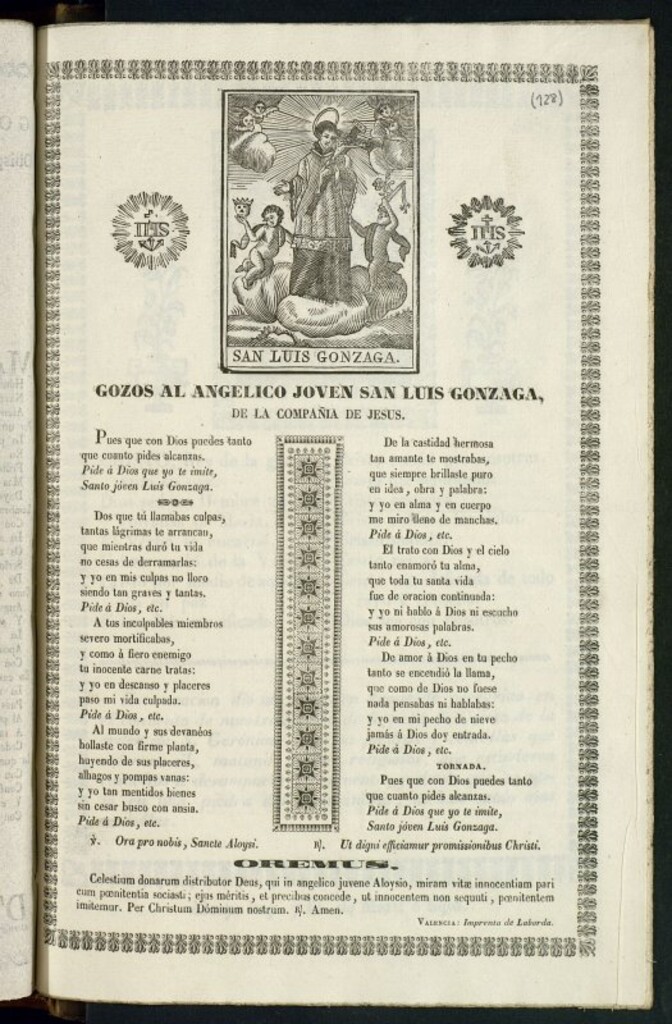 (128)
IHS
IHS
SAN LUIS GONZAGA.
GOZOS AL ANGELICO JOVEN SAN LUIS GONZAGA,
DE LA COMPAÑIA DE JESUS.
Pues que con Dios puedes tanto
que cuanto pides alcanzas.
Pide á Dios que yo te imite,
Santo jóven Luis Gonzaga.
Dos que tú llamabas culpas,
tantas lágrimas te arrancan,
que mientras duró tu vida
no cesas de derramarlas:
y yo en mis culpas no lloro
siendo tan graves y tantas.
Pide á Dios, etc.
A tus inculpables miembros
severo mortificabas,
y como á fiero enemigo
tu inocente carne tratas:
y yo en descanso y placeres
paso mi vida culpada.
Pide á Dios, etc.
Al mundo y sus devanéos
hollaste con firme planta,
huyendo de sus placeres,
alhagos y pompas vanas:
y yo tan mentidos bienes
sin cesar busco con ansia.
Pide á Dios, etc.
De la castidad hermosa
tan amante te mostrabas,
que siempre brillaste puro
en idea, obra y palabra:
y yo en alma y en cuerpo
me miro lleno de manchas.
Pide á Dios, etc.
El trato con Dios y el cielo
tanto enamoró tu alma,
que toda tu santa vida
fue de oracion continuada:
y yo ni hablo á Dios ni escucho
sus amorosas palabras.
Pide á Dios, etc.
De amor á Dios en tu pecho
tanto se encendió la llama,
que como de Dios no fuese
nada pensabas ni hablabas:
y yo en mi pecho de nieve
jamás á Dios doy entrada.
Pide á Dios, etc.
TORNADA.
Pues que con Dios puedes tanto
que cuanto pides alcanzas.
Pide á Dios que yo te imite,
Santo jóven Luis Gonzaga.
℣. Ora pro nobis, Sancte Aloysi. ℟. Ut digni efficiamur promissionibus Christi.
OREMUS.
Celestium donarum distributor Deus, qui in angelico juvene Aloysio, miram vitæ innocentiam pari
cum pœnitentia sociasti; ejus méritis, et precibus concede, ut innocentem non sequuti, pœnitentem
imitemur. Per Christum Dóminum nostrum. ℟. Amen.
VALENCIA: Imprenta de Laborda.